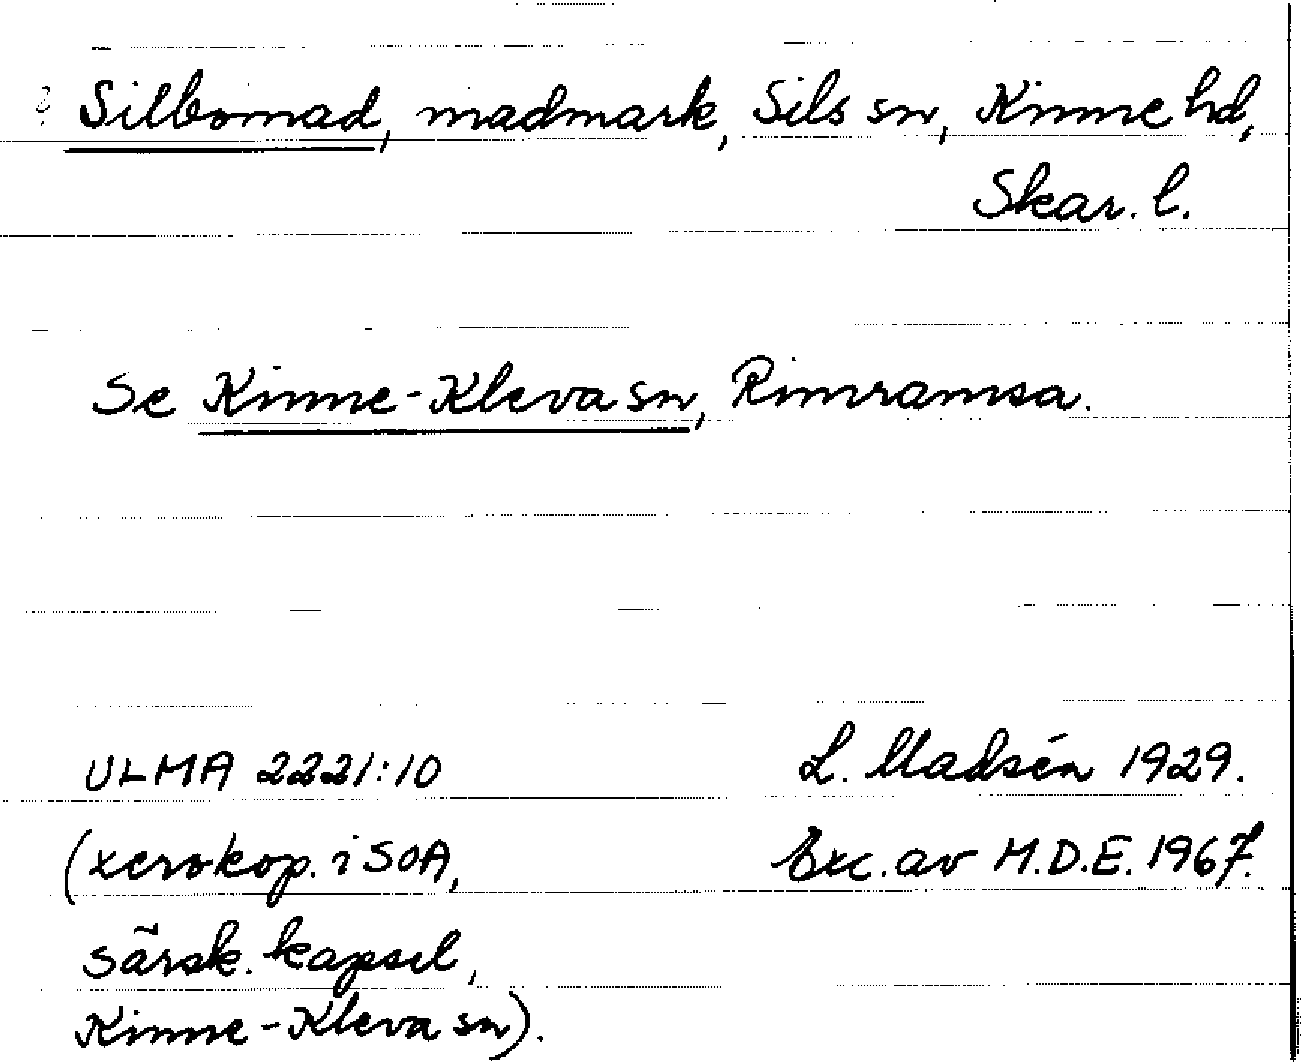 ? Silbomad, madmark, Sils sn, Kinne hd,
Skar. l.
Se Kinne-Kleva sn, Rimramsa.
ULMA 2221:10 L. Madsén 1929.
(xerokop. i SOA, Exc. av M.D.E. 1967.
särsk. kapsel,
Kinne-Kleva sn).